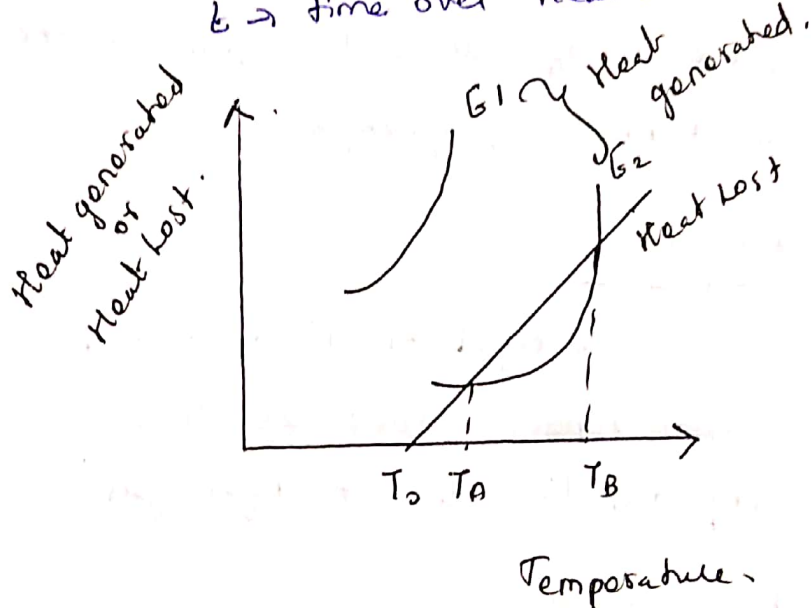 t → time over
G1 Heat
generated.
G2
Heat Lost
Heat generated
or
Heat Lost.
To TA TB
Temperature.